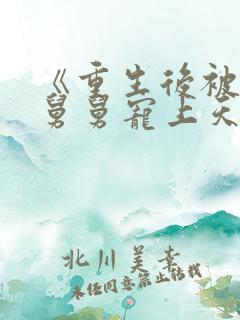 《重生後被
舅舅寵上天
北川美幸
未經同意禁止轉載